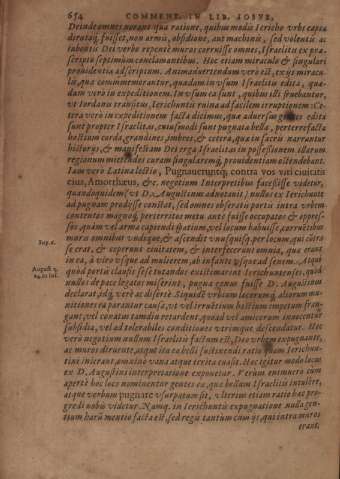 654 COMMENT. IN LIB. IOSVE,
Deinde omnes norant qua ratione, quibus modis Iericho vrbs capta
dirutaq́; fuisset, non armis, obsidione, aut machinis, sed volentis ac
iubentis Dei verbo repente muros corruisse omneis, Israelitis ex præ
scripto septimùm conclamantibus. Hoc etiam miraculo & singulari
prouidentia adscriptum. Animaduertendum vero est, ex ijs miracu-
lis, quæ commemorantur, quædam in vsum Israelitis edita, quæ-
dam vero in expeditionem. In vsum ea sunt, quibus illi fruebantur,
vt Iordanis transitus, Ierichuntis ruina ad facilem irruptionem: Ce
tera vero in expeditionem facta dicimus, quæ aduersus gentes edita
sunt propter Israelitas, cuiusmodi sunt pugnata bella, perterrefacta
hostium corda, grandines, imbres, & cetera, quæ in sacris narrantur
historijs, & manifestam Dei erga Israelitas in possessionem illarum
regionum mittendos curam singularemq́; prouidentiam ostendebant.
Iam vero Latina lectio, Pugnaueruntq; contra vos viri ciuitatis
eius, Amorrhæus, &c. negotium Interpretibus facessisse videtur,
quandoquidem, vt D. Augustinus adnotauit, nullos ex Ierichunte
ad pugnam prodisse constat, sed omnes obseratis portis intra vrbem
contentos magnoq́; perterritos metu ante fuisse occupatos & oppres-
sos, quàm vel arma capiendi spatium, vel locum habuisse, corruētibus
muris omnibus vndique, & ascendit vnusquisq; per locum, qui cōtra
se erat, & ceperunt ciuitatem, & interfecerunt omnia, quæ erant
in ea, à viro vsque ad mulierem, ab infante vsque ad senem. Atque
quòd portis clausis sese tutandos existimarint Ierichuntenses, quòd
nullos de pace legatos miserint, pugnæ genus fuisse D. Augustinus
declarat, &c. verò ac disertè. Siquidē vrbium lucernæq́; aliorum mu-
nitiones eu parantur causa, vt vel irruētium hostium impetum fran-
gant; vel conatus tamdiu retardent, quoad vel amicorum innocentur
subsidia, vel ad tolerabiles conditiones vtrimque descendatur. Hoc
vero negotium nullum Israelitis factum est, Deo vrbem expugnante,
ac muros diruente, atque ita ex belli suscitandi ratio quam Ierichun-
tini inierant, omnino vana atque irrita cessit. Hoc igitur modo locus
ex D. Augustini interpretatione exponetur. Verùm enimuero cum
apertè hoc loco nominentur gentes eæ, quæ bellum Israelitis intulere,
atque verbum pugnate vsurpatum sit, vlterius etiam ratio hæc pro-
gredi nobis videtur. Namq́; in Ierichuntis expugnatione nulla gen-
tium harū mentio facta est, sed regis tantùm eius ijs, qui intra muros
erant,
Sup. 6.